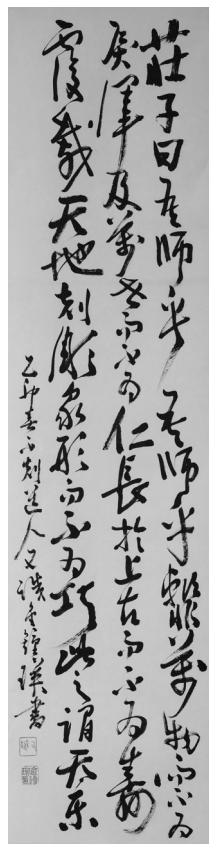 莊子曰吾師乎吾師乎𩐋萬物而不為
戾澤及萬世而不為仁長於上古而不為壽
覆載天地刻彫衆形而不為巧此之謂天樂
春不刻道人又誠金鐘瑛書